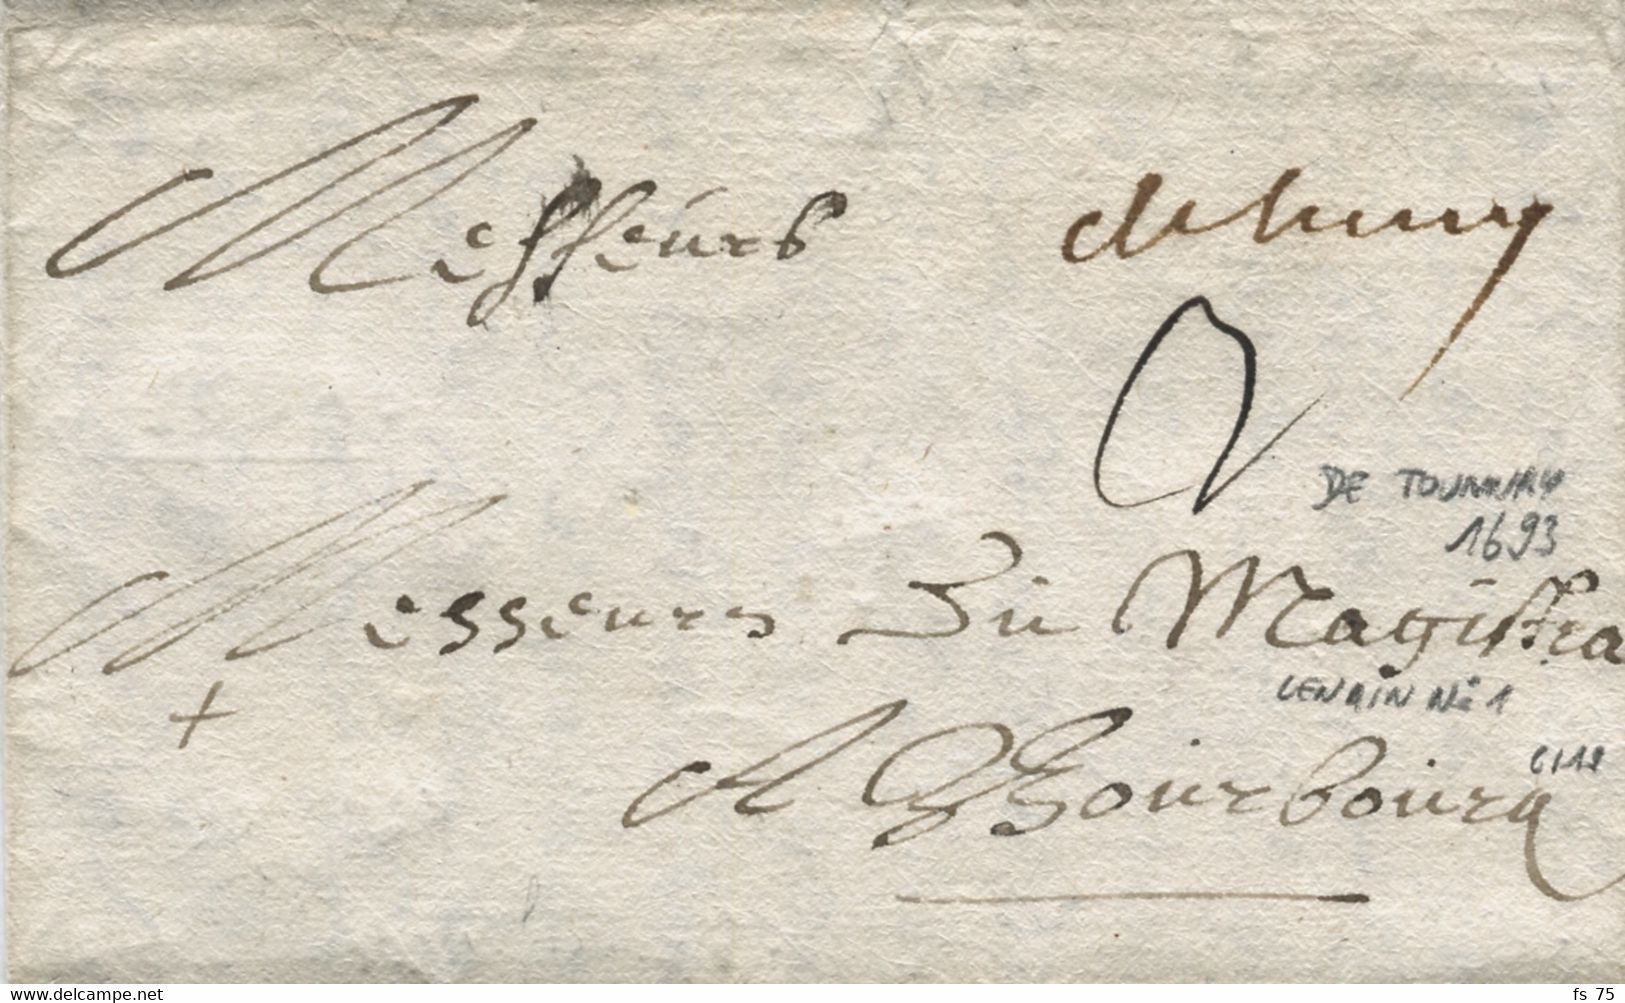 Messeurs
2
DE TOURNAY
1693
Messeurs Du Magistra
LENAIN No 1
A Bourbourg
www.delcampe.net
fs 75